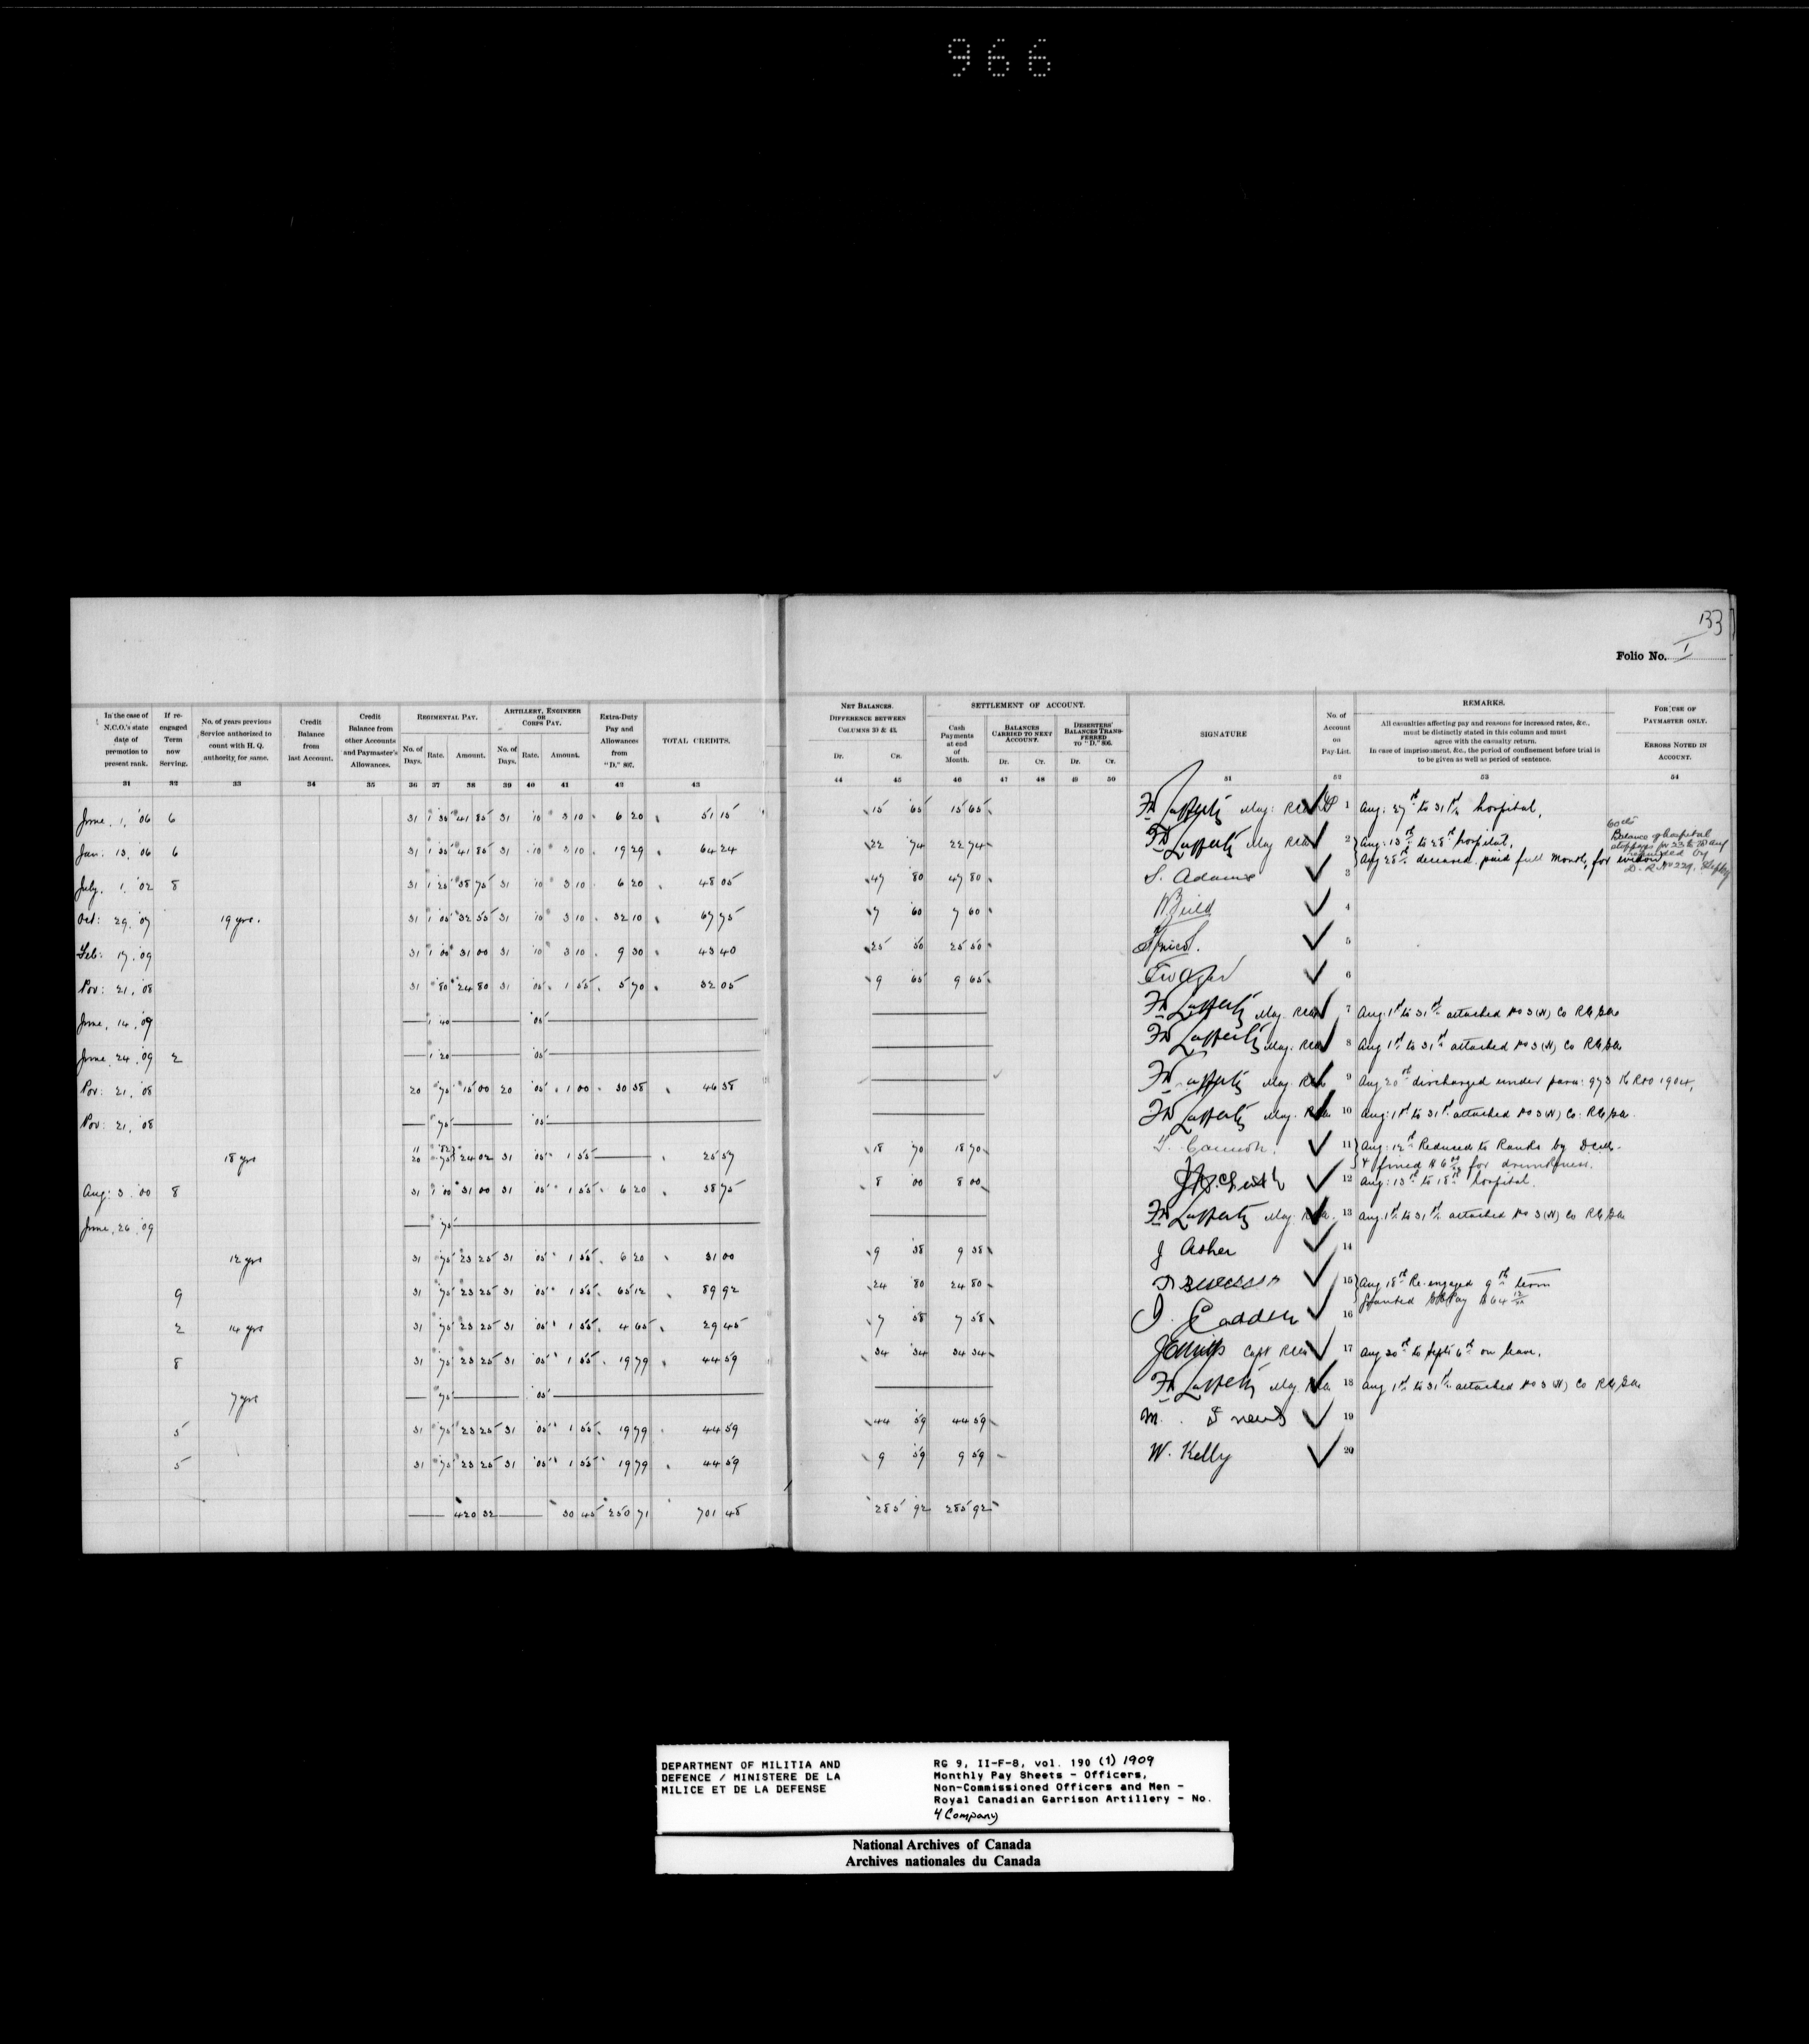 966
133
Folio No. I
In the case of N.C.O.'s state date of promotion to present rank.
If re-engaged Term now Serving.
No. of years previous Service authorized to count with H. Q. authority for same.
Credit Balance from last Account.
Credit Balance from other Accounts and Paymaster's Allowances.
REGIMENTAL PAY.
No. of Days. Rate. Amount.
ARTILLERY, ENGINEER OR CORPS PAY.
No. of Days. Rate. Amount.
Extra-Duty Pay and Allowances from "D." 807.
TOTAL CREDITS.
NET BALANCES.
DIFFERENCE BETWEEN COLUMNS 30 & 43.
Dr. Cr.
SETTLEMENT OF ACCOUNT.
Cash Payments at end of Month.
BALANCES CARRIED TO NEXT ACCOUNT.
Dr. Cr.
DESERTERS' BALANCES TRANSFERRED TO "D." 806.
Dr. Cr.
SIGNATURE
No. of Account on Pay-List.
REMARKS.
All casualties affecting pay and reasons for increased rates, &c., must be distinctly stated in this column and must agree with the casualty return.
In case of imprisonment, &c., the period of confinement before trial is to be given as well as period of sentence.
FOR USE OF PAYMASTER ONLY.
ERRORS NOTED IN ACCOUNT.
31 32 33 34 35 36 37 38 39 40 41 42 43 44 45 46 47 48 49 50 51 52 53 54
June. 1. '06 6 31 1 35 41 85 31 10 3 10 6 20 51 15 15 65 15 65 Lafferty Maj: RCA 1 Aug: 27th to 31st hospital,
Jan: 13. 06 6 31 1 35 41 85 31 10 3 10 19 29 64 24 22 74 22 74 Lafferty Maj RCA 2 Aug: 13th to 28th hospital,
Aug 28th deceased. paid full month, for widow
60 cts Balance of hospital stoppages for 23 to 28 Aug
July. 1. '02 8 31 1 25 38 75 31 10 3 10 6 20 48 05 47 80 47 80 S. Adams 3
Oct: 29. 07 19 yrs. 31 1 05 32 55 31 10 3 10 32 10 67 75 7 60 7 60 4
Feb: 17. 09 31 1 00 31 00 31 10 3 10 9 30 43 40 25 50 25 50 5
Nov: 21. 08 31 80 24 80 31 05 1 55 5 70 32 05 9 65 9 65 6
June, 14. '09 1 40 05 Lafferty Maj. RCA 7 Aug: 1st to 31st attached No 3 (H) Co RCGA
June. 24. 09 2 1 20 05 Lafferty Maj. RCA 8 Aug 1st to 31st attached No 3 (H) Co RCGA
Nov: 21. 08 20 75 15 00 20 05 1 00 30 38 46 38 Lafferty Maj. RCA 9 Aug 20th discharged under para: 973 KR&O 1904,
Nov: 21. 08 75 05 Lafferty Maj. RCA 10 Aug: 1st to 31st attached No 3 (H) Co: RCGA.
18 yrs 11 20 82 75 24 02 31 05 1 55 25 57 18 70 18 70 Cannon. 11 Aug: 12th Reduced to Ranks by D.C.M.
& fined $6 00 for drunkenness.
Aug: 3. 00 8 31 1 00 31 00 31 05 1 55 6 20 38 75 8 00 8 00 12 Aug: 13th to 18th hospital.
June. 26. 09 75 Lafferty Maj. RCA. 13 Aug. 1st to 31st attached No 3 (H) Co RCGA
12 yrs 31 75 23 25 31 05 1 55 6 20 31 00 9 38 9 38 J Asher 14
9 31 75 23 25 31 05 1 55 65 12 89 92 24 80 24 80 15 Aug 18th Re-engaged 9th term
Granted Pay $64 12
2 14 yrs 31 75 23 25 31 05 1 55 4 65 29 45 7 58 7 58 Cadden 16
8 31 75 23 25 31 05 1 55 19 79 44 59 34 34 34 34 Capt RCA 17 Aug 20th to Sept: 6th on leave.
7 yrs 75 05 Lafferty Maj. RCA. 18 Aug 1st to 31st attached No 3 (H) Co RCGA
5 31 75 23 25 31 05 1 55 19 79 44 59 44 59 44 59 M. 19
5 31 75 23 25 31 05 1 55 19 79 44 59 9 59 9 59 W. Kelly 20
420 32 30 45 250 71 701 48 285 92 285 92
DEPARTMENT OF MILITIA AND
DEFENCE / MINISTERE DE LA
MILICE ET DE LA DEFENSE
RG 9, II-F-8, vol. 190 (1) 1909
Monthly Pay Sheets - Officers,
Non-Commissioned Officers and Men -
Royal Canadian Garrison Artillery - No.
4 Company
National Archives of Canada
Archives nationales du Canada